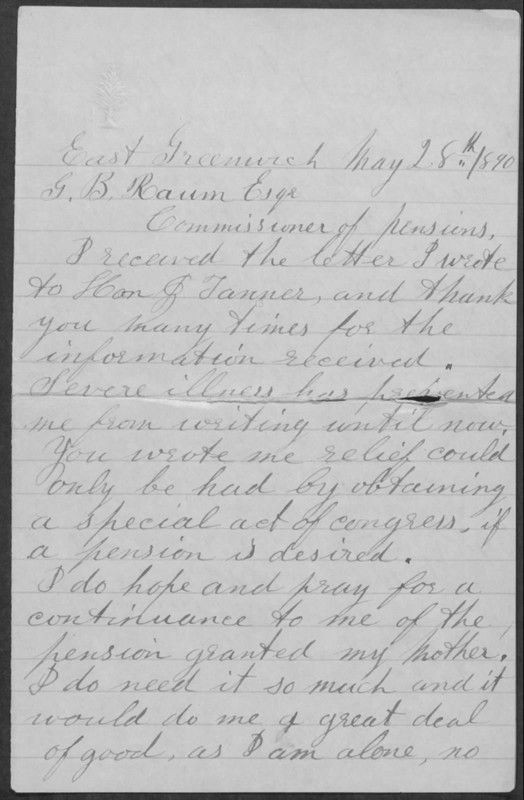 East Greenwich May 28th/1890
G. B. Raum Esqr
Commissioner of pensions.
I received the letter I wrote
to Hon J Tanner, and thank
you many times for the
information received.
Severe illness has prevented
me from writing until now.
You wrote me relief could
only be had by obtaining
a special act of congress, if
a pension is desired.
I do hope and pray for a
continuance to me of the
pension granted my mother.
I do need it so much and it
would do me a great deal
of good, as I am alone, no